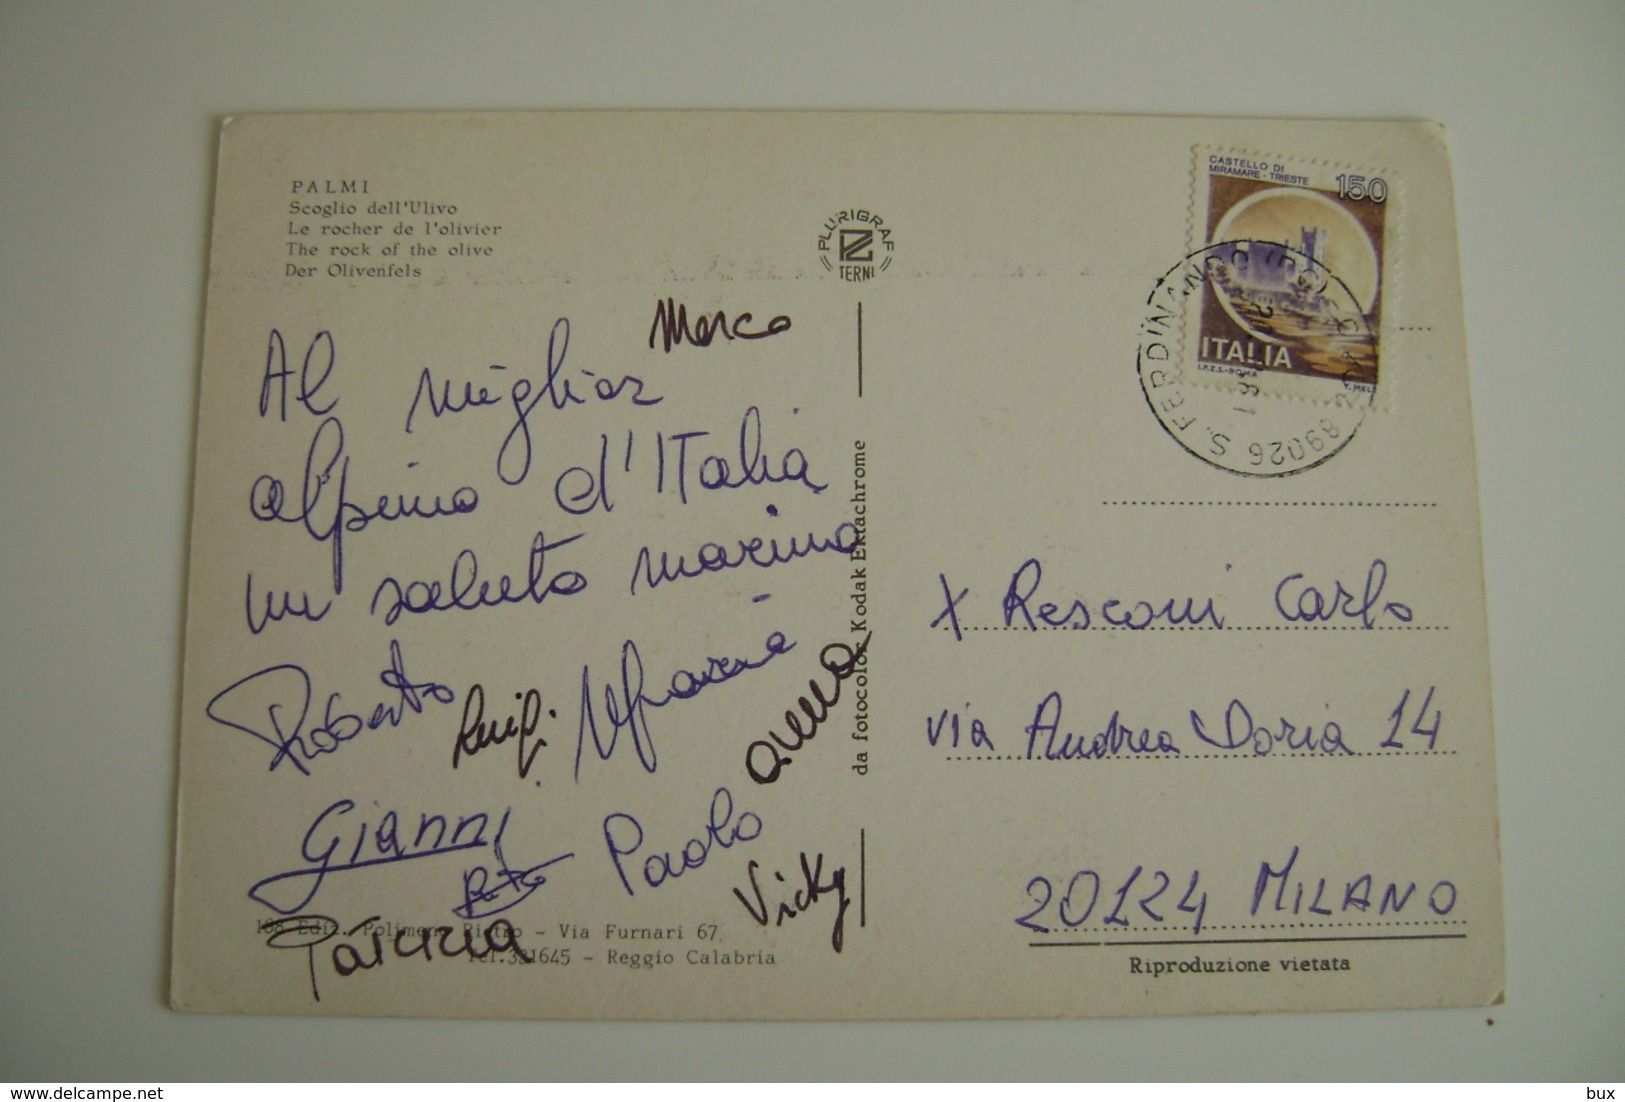 PALMI
Scoglio dell'Ulivo
Le rocher de l'olivier
The rock of the olive
Der Olivenfels
PLURIGRAF
TERNI
CASTELLO DI
MIRAMARE - TRIESTE
150
ITALIA
I.P.Z.S.-ROMA
89026 S. FERDINANDO (RC)
Marco
Al miglior
alpino d'Italia
un saluto marino
Roberto
Luigi
Maria
anna
Gianni
Paolo
Vicky
Patrizia
da fotocolor Kodak Ektachrome
X Resconi Carlo
Via Andrea Doria 14
20124 MILANO
Riproduzione vietata
168 Ediz. Polimeno Pietro - Via Furnari 67
Tel.321645 - Reggio Calabria
delcampe.net
bux